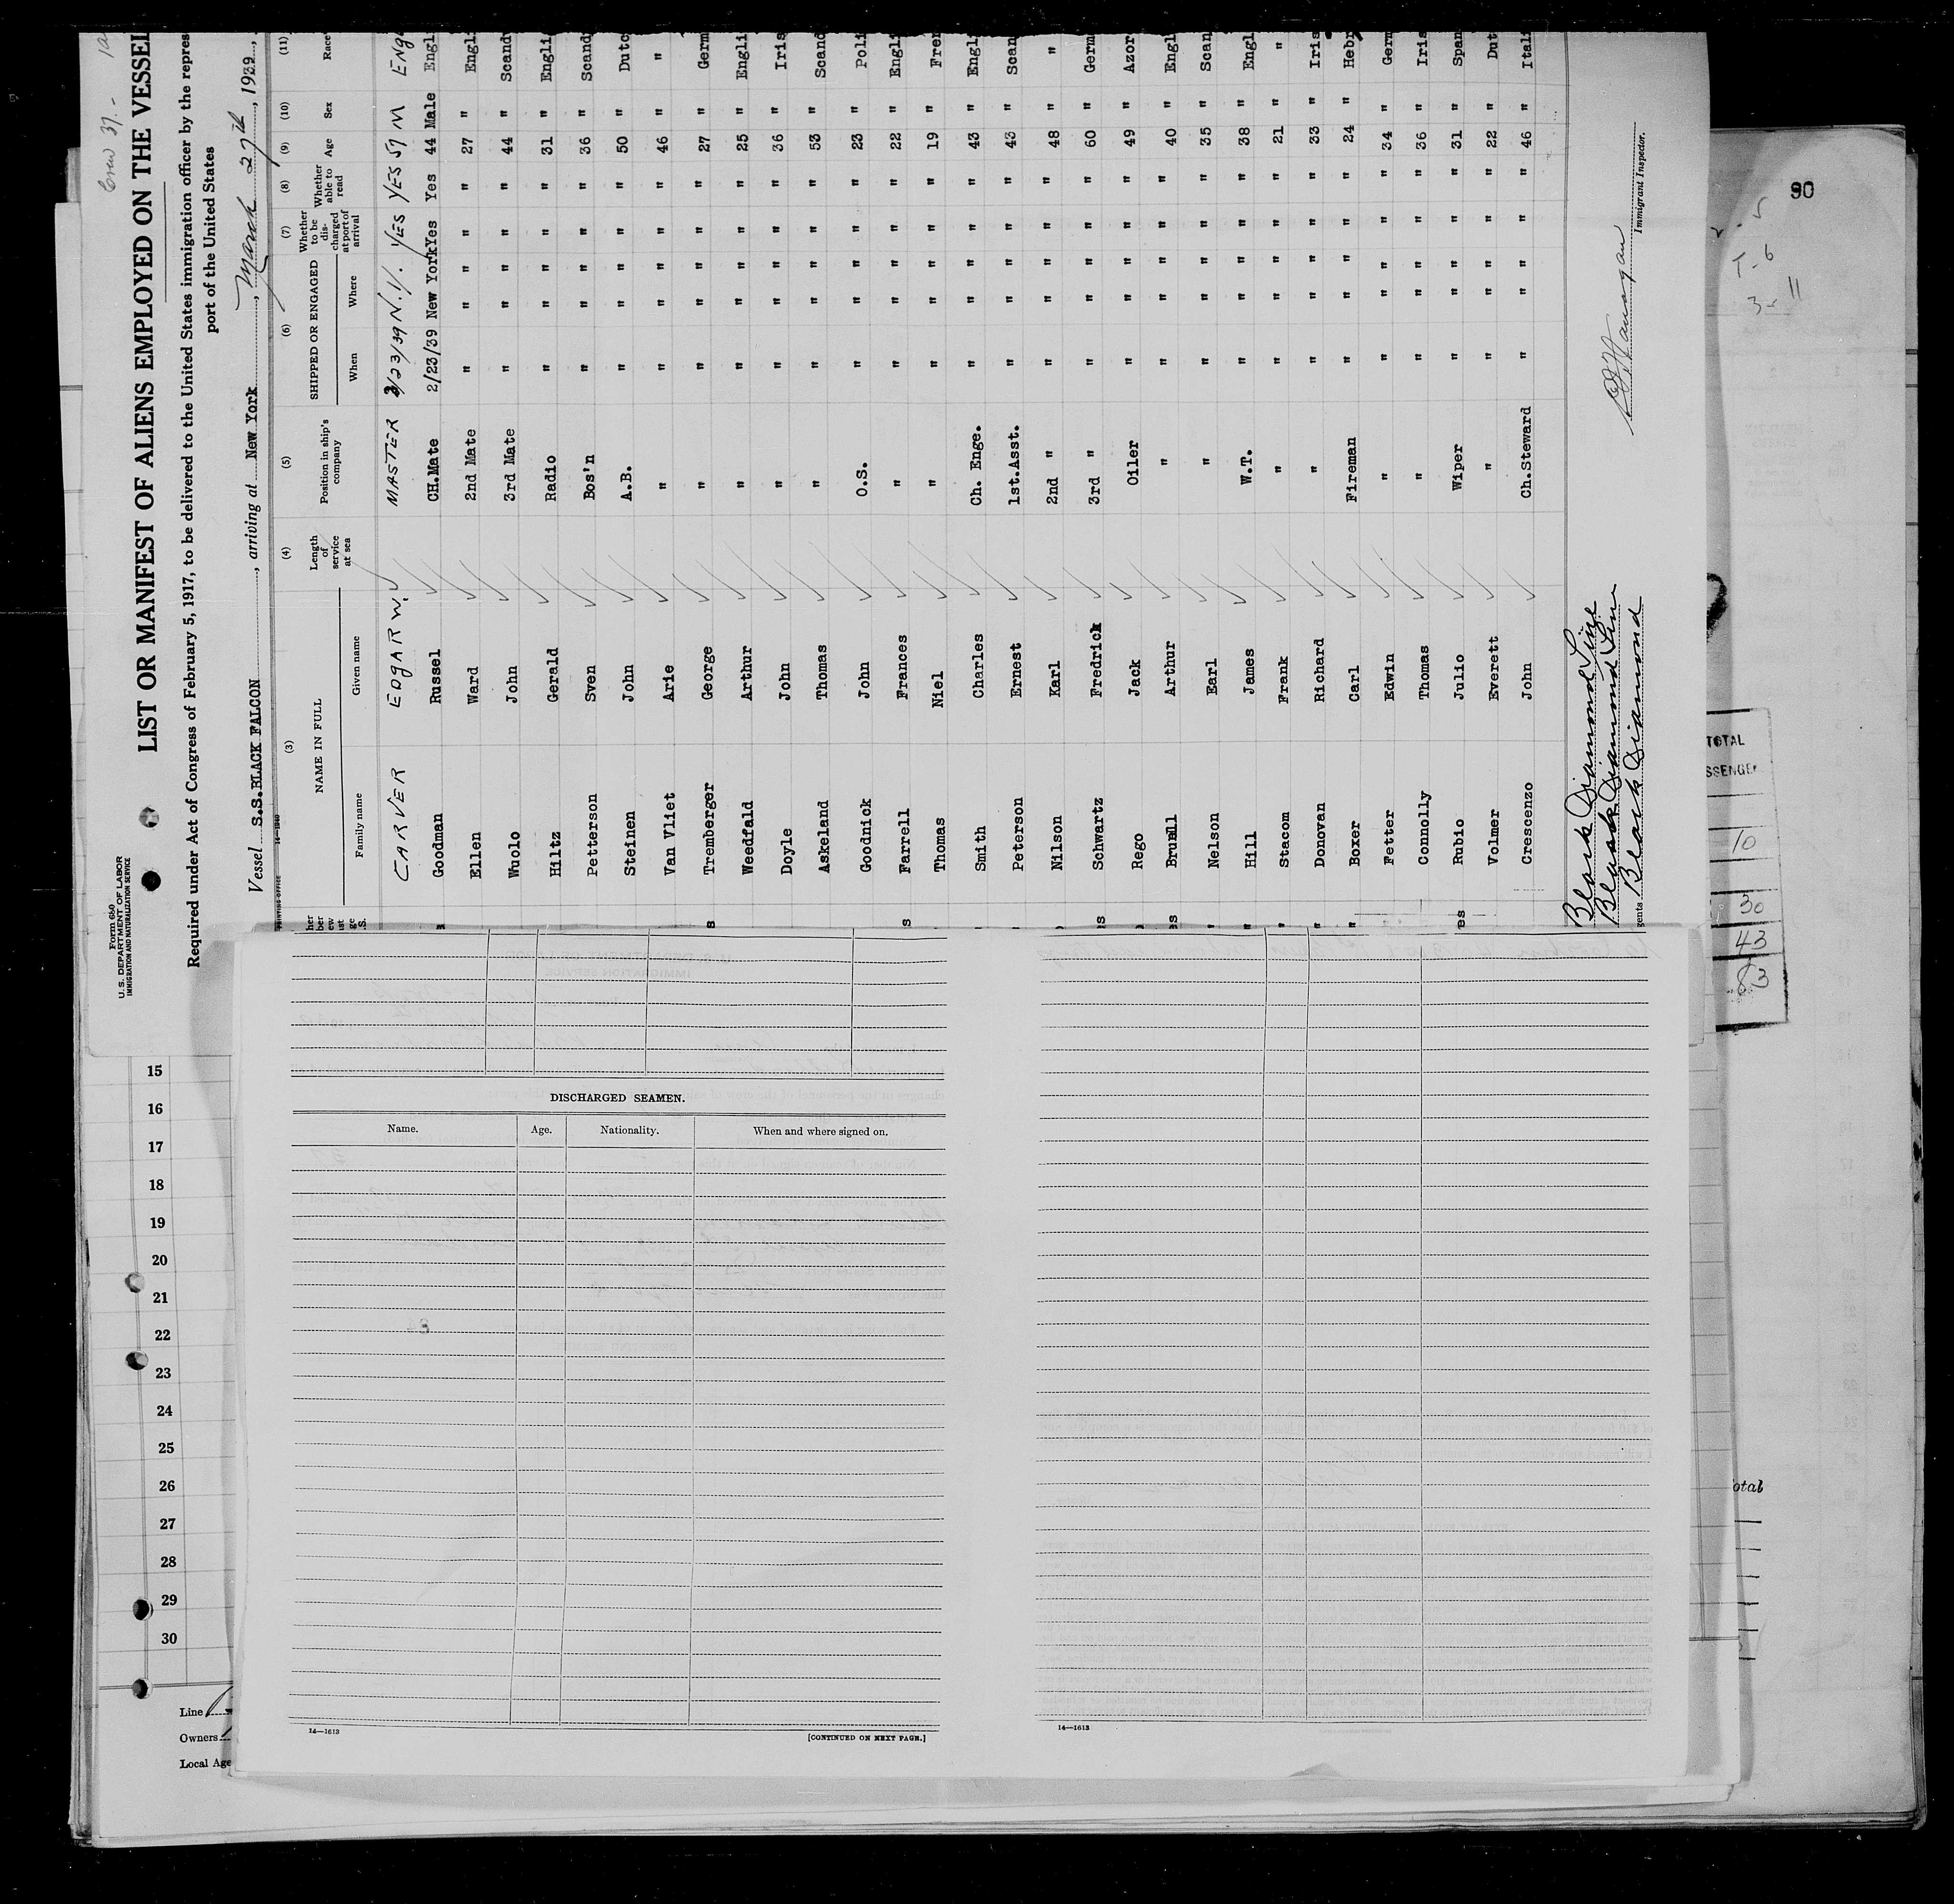 Crew 37.-
Form 680
U. S. DEPARTMENT OF LABOR
IMMIGRATION AND NATURALIZATION SERVICE
LIST OR MANIFEST OF ALIENS EMPLOYED ON THE VESSEL
Required under Act of Congress of February 5, 1917, to be delivered to the United States immigration officer by the repres
port of the United States
Vessel S.S.BLACK FALCON, arriving at New York, March 27th, 1939,
PRINTING OFFICE 14—1240
(3) (4) (5) (6) (7) (8) (9) (10) (11)
NAME IN FULL
Family name Given name
Length of service at sea
Position in ship's company
SHIPPED OR ENGAGED
When Where
Whether to be discharged at port of arrival
Whether able to read
Age Sex Race
CARVER EDGAR W. MASTER 3/23/39 N.Y. YES YES 51 M ENG
Goodman Russel CH.Mate 2/23/39 New York Yes Yes 44 Male Engli
Ellen Ward 2nd Mate " " " " " 27 " Engl
Wuolo John 3rd Mate " " " " " 44 " Scand
Hiltz Gerald Radio " " " " " 31 " Engli
Petterson Sven Bos'n " " " " " 36 " Scand
Steinen John A.B. " " " " " 50 " Dutc
Van Vliet Arie " " " " " " 46 " "
Tremberger George " " " " " " 27 " Germ
Weedfald Arthur " " " " " " 25 " Engli
Doyle John " " " " " " 36 " Iris
Askeland Thomas " " " " " " 53 " Scand
Goodnick John O.S. " " " " " 23 " Poli
Farrell Frances " " " " " " 22 " Engli
Thomas Niel " " " " " " 19 " Fren
Smith Charles Ch. Enge. " " " " " 43 " Engli
Peterson Ernest 1st.Asst. " " " " " 43 " Scan
Nilson Karl 2nd " " " " " " 48 " "
Schwartz Fredrick 3rd " " " " " " 60 " Germ
Rego Jack Oiler " " " " " 49 " Azor
Brunell Arthur " " " " " " 40 " Engl
Nelson Earl " " " " " " 35 " Scan
Hill James W.T. " " " " " 38 " Engl
Stacom Frank " " " " " " 21 " "
Donovan Richard " " " " " " 33 " Iris
Boxer Carl Fireman " " " " " 24 " Hebr
Fetter Edwin " " " " " " 34 " Germ
Connolly Thomas " " " " " " 36 " Iris
Rubio Julio Wiper " " " " " 31 " Span
Volmer Everett " " " " " " 22 " Dut
Crescenzo John Ch.Steward " " " " " 46 " Itali
Black Diamond Line
Black Diamond Line
gents Black Diamond
Immigrant Inspector.
90
T-6
TOTAL
SSENGE
10
30
43
83
otal
15
16
17
18
19
20
21
22
23
24
25
26
27
28
29
30
Line
Owners
Local Age
DISCHARGED SEAMEN.
Name. Age. Nationality. When and where signed on.
14—1613
[CONTINUED ON NEXT PAGE.]
14—1613